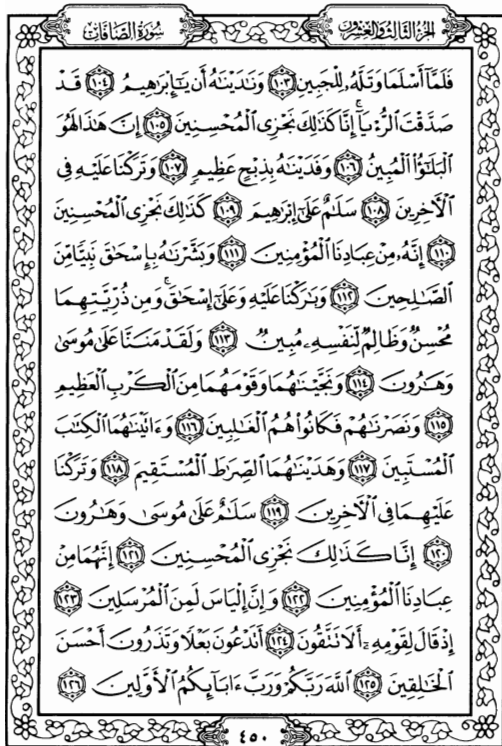 الجزء الثالث والعشرون
سورة الصافات
فَلَمَّآ أَسْلَمَا وَتَلَّهُۥ لِلْجَبِينِ ١٠٣ وَنَٰدَيْنَٰهُ أَن يَٰٓإِبْرَٰهِيمُ ١٠٤ قَدْ
صَدَّقْتَ ٱلرُّءْيَآ ۚ إِنَّا كَذَٰلِكَ نَجْزِى ٱلْمُحْسِنِينَ ١٠٥ إِنَّ هَٰذَا لَهُوَ
ٱلْبَلَٰٓؤُا۟ ٱلْمُبِينُ ١٠٦ وَفَدَيْنَٰهُ بِذِبْحٍ عَظِيمٍ ١٠٧ وَتَرَكْنَا عَلَيْهِ فِى
ٱلْءَاخِرِينَ ١٠٨ سَلَٰمٌ عَلَىٰٓ إِبْرَٰهِيمَ ١٠٩ كَذَٰلِكَ نَجْزِى ٱلْمُحْسِنِينَ
١١٠ إِنَّهُۥ مِنْ عِبَادِنَا ٱلْمُؤْمِنِينَ ١١١ وَبَشَّرْنَٰهُ بِإِسْحَٰقَ نَبِيًّا مِّنَ
ٱلصَّٰلِحِينَ ١١٢ وَبَٰرَكْنَا عَلَيْهِ وَعَلَىٰٓ إِسْحَٰقَ ۚ وَمِن ذُرِّيَّتِهِمَا
مُحْسِنٌ وَظَالِمٌ لِّنَفْسِهِۦ مُبِينٌ ١١٣ وَلَقَدْ مَنَنَّا عَلَىٰ مُوسَىٰ
وَهَٰرُونَ ١١٤ وَنَجَّيْنَٰهُمَا وَقَوْمَهُمَا مِنَ ٱلْكَرْبِ ٱلْعَظِيمِ
١١٥ وَنَصَرْنَٰهُمْ فَكَانُوا۟ هُمُ ٱلْغَٰلِبِينَ ١١٦ وَءَاتَيْنَٰهُمَا ٱلْكِتَٰبَ
ٱلْمُسْتَبِينَ ١١٧ وَهَدَيْنَٰهُمَا ٱلصِّرَٰطَ ٱلْمُسْتَقِيمَ ١١٨ وَتَرَكْنَا
عَلَيْهِمَا فِى ٱلْءَاخِرِينَ ١١٩ سَلَٰمٌ عَلَىٰ مُوسَىٰ وَهَٰرُونَ
١٢٠ إِنَّا كَذَٰلِكَ نَجْزِى ٱلْمُحْسِنِينَ ١٢١ إِنَّهُمَا مِنْ
عِبَادِنَا ٱلْمُؤْمِنِينَ ١٢٢ وَإِنَّ إِلْيَاسَ لَمِنَ ٱلْمُرْسَلِينَ ١٢٣
إِذْ قَالَ لِقَوْمِهِۦٓ أَلَا تَتَّقُونَ ١٢٤ أَتَدْعُونَ بَعْلًا وَتَذَرُونَ أَحْسَنَ
ٱلْخَٰلِقِينَ ١٢٥ ٱللَّهَ رَبَّكُمْ وَرَبَّ ءَابَآئِكُمُ ٱلْأَوَّلِينَ ١٢٦
٤٥٠